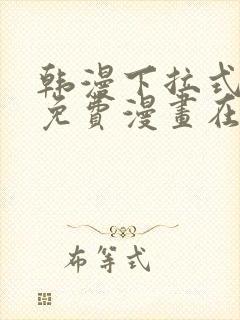 韩漫下拉式
免費漫畫在
布等式